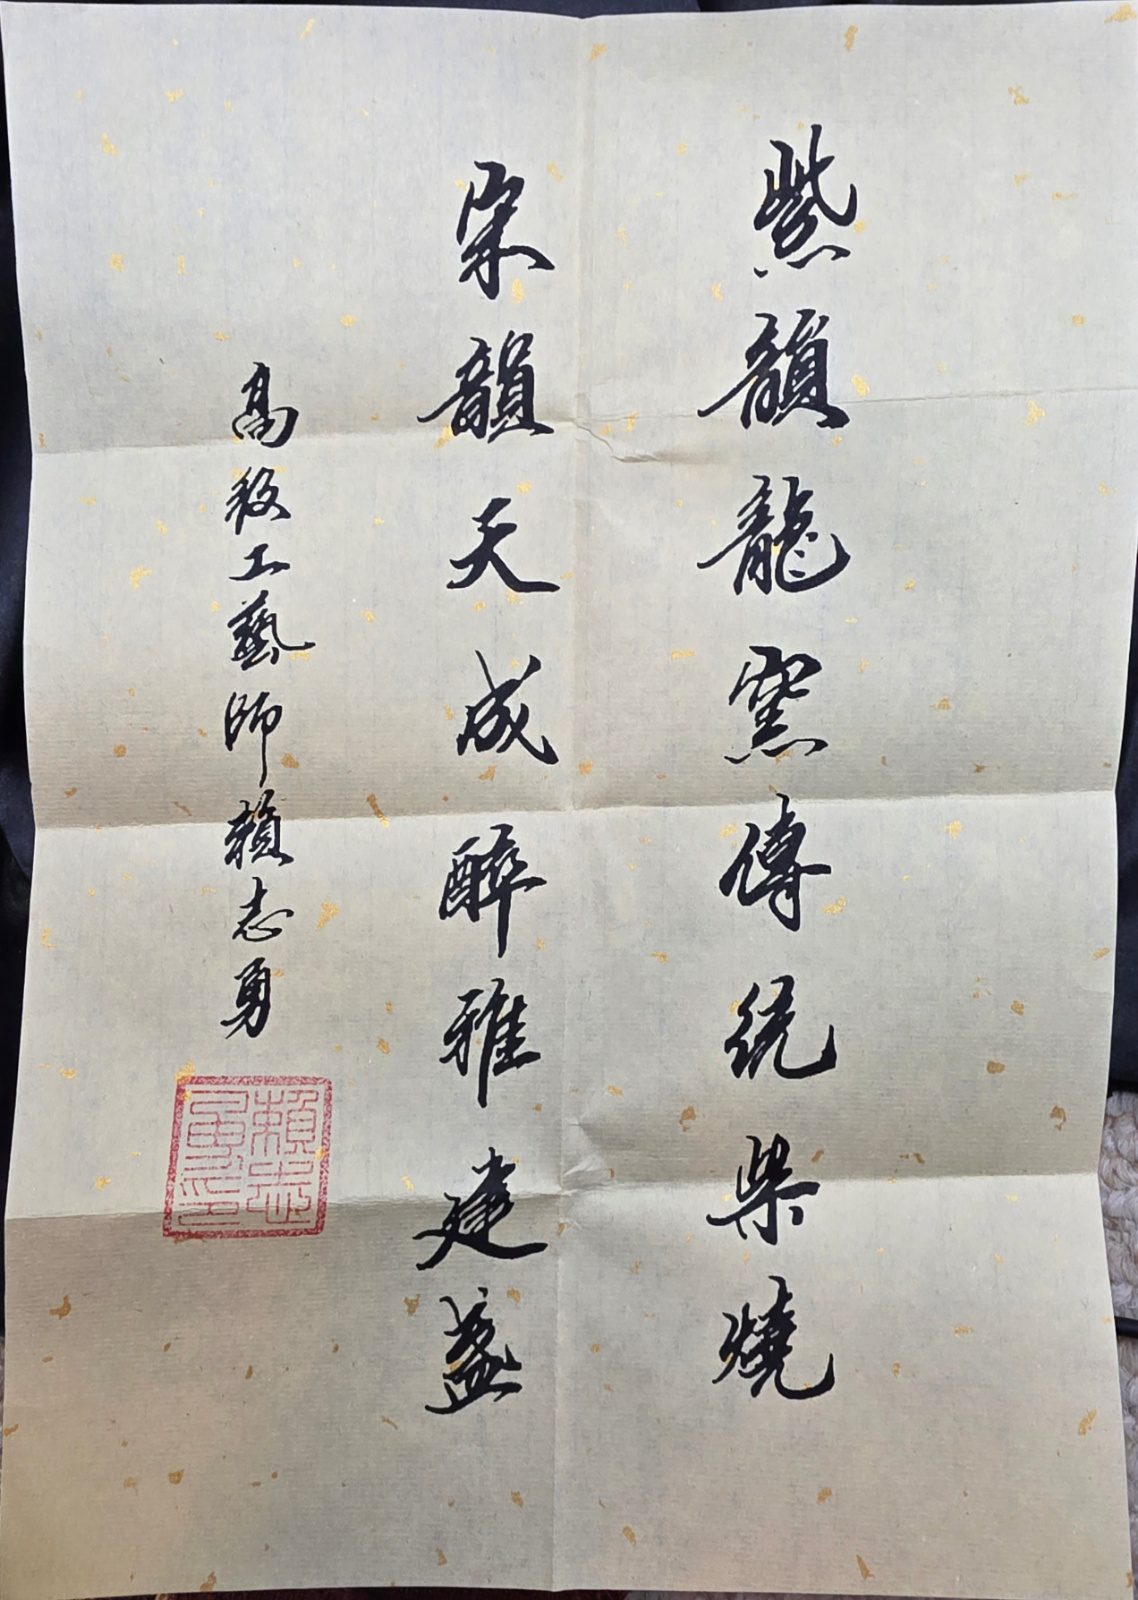 紫韻龍窯傳統柴燒
宋韻天成醉雅建盞
高级工藝師賴志勇
賴志勇印